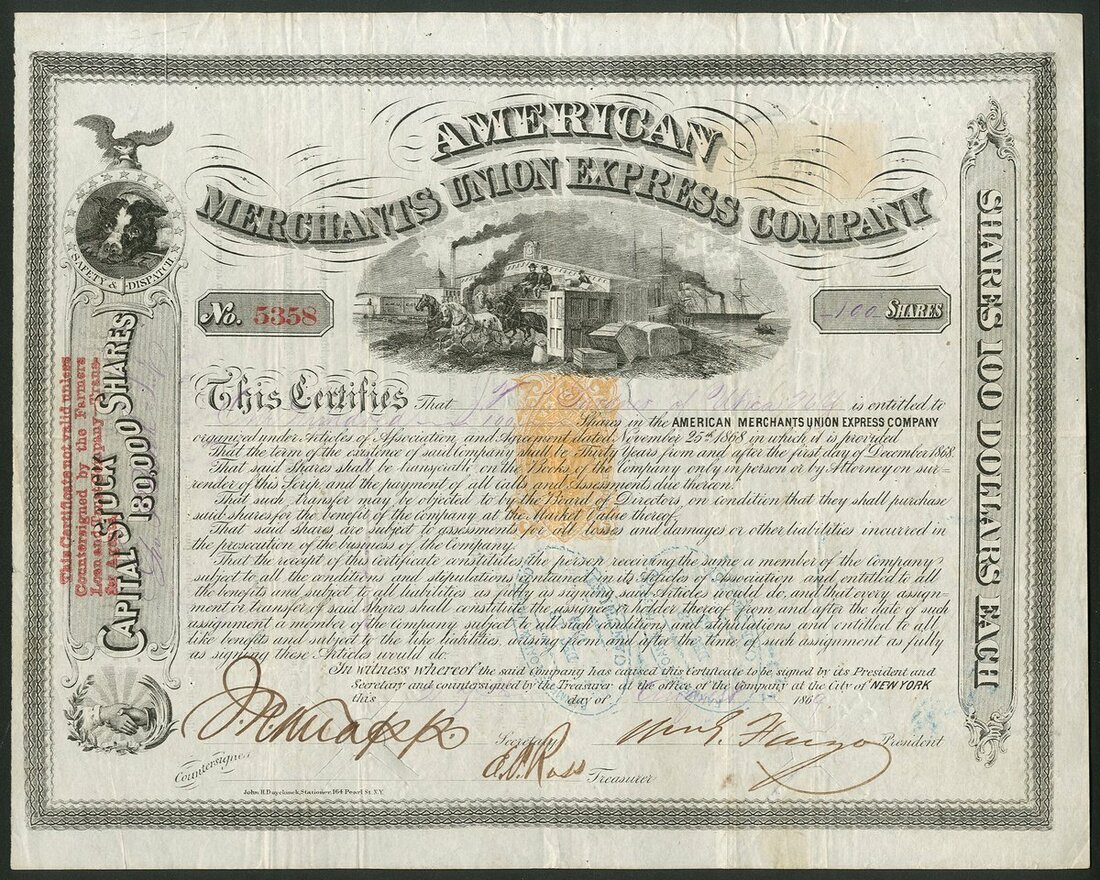 AMERICAN
MERCHANTS UNION EXPRESS COMPANY
SAFETY & DISPATCH
No. 5358
100 SHARES
CAPITAL STOCK 180,000 SHARES
SHARES 100 DOLLARS EACH
This Certificate not valid unless
Countersigned by the Farmers
Loan and Trust Company Trans-
fer Agents
This Certifies That is entitled to
Shares in the AMERICAN MERCHANTS UNION EXPRESS COMPANY
organized under Articles of Association, and Agreement dated November 25th 1868 in which it is provided
That the term of the existence of said Company shall be Thirty Years from and after the first day of December 1868.
That said Shares shall be transferable on the Books of the Company only in person or by Attorney on sur-
render of this Scrip, and the payment of all Calls and Assessments due thereon.
That such transfer may be objected to by the Board of Directors, on condition that they shall purchase
said shares for the benefit of the Company at the Market Value thereof.
That said shares are subject to assessments for all losses and damages or other liabilities incurred in
the prosecution of the business of the Company.
That the receipt of this certificate constitutes the person receiving the same a member of the Company,
subject to all the conditions and stipulations contained in its Articles of Association and entitled to all
the benefits and subject to all liabilities as fully as signing said Articles would do, and that every assign-
ment or transfer of said Shares shall constitute the assignee or holder thereof from and after the date of such
assignment a member of the Company subject to all such conditions and stipulations and entitled to all
like benefits and subject to the like liabilities arising from and after the time of such assignment as fully
as signing these Articles would do.
In witness whereof the said Company has caused this Certificate to be signed by its President and
Secretary and countersigned by the Treasurer at the office of the Company at the City of NEW YORK
this day of 1869
J. N. Knapp Secretary Wm G. Fargo President
Countersigned
A. C. Ross Treasurer
John H. Duyckinck, Stationer, 164 Pearl St. N.Y.